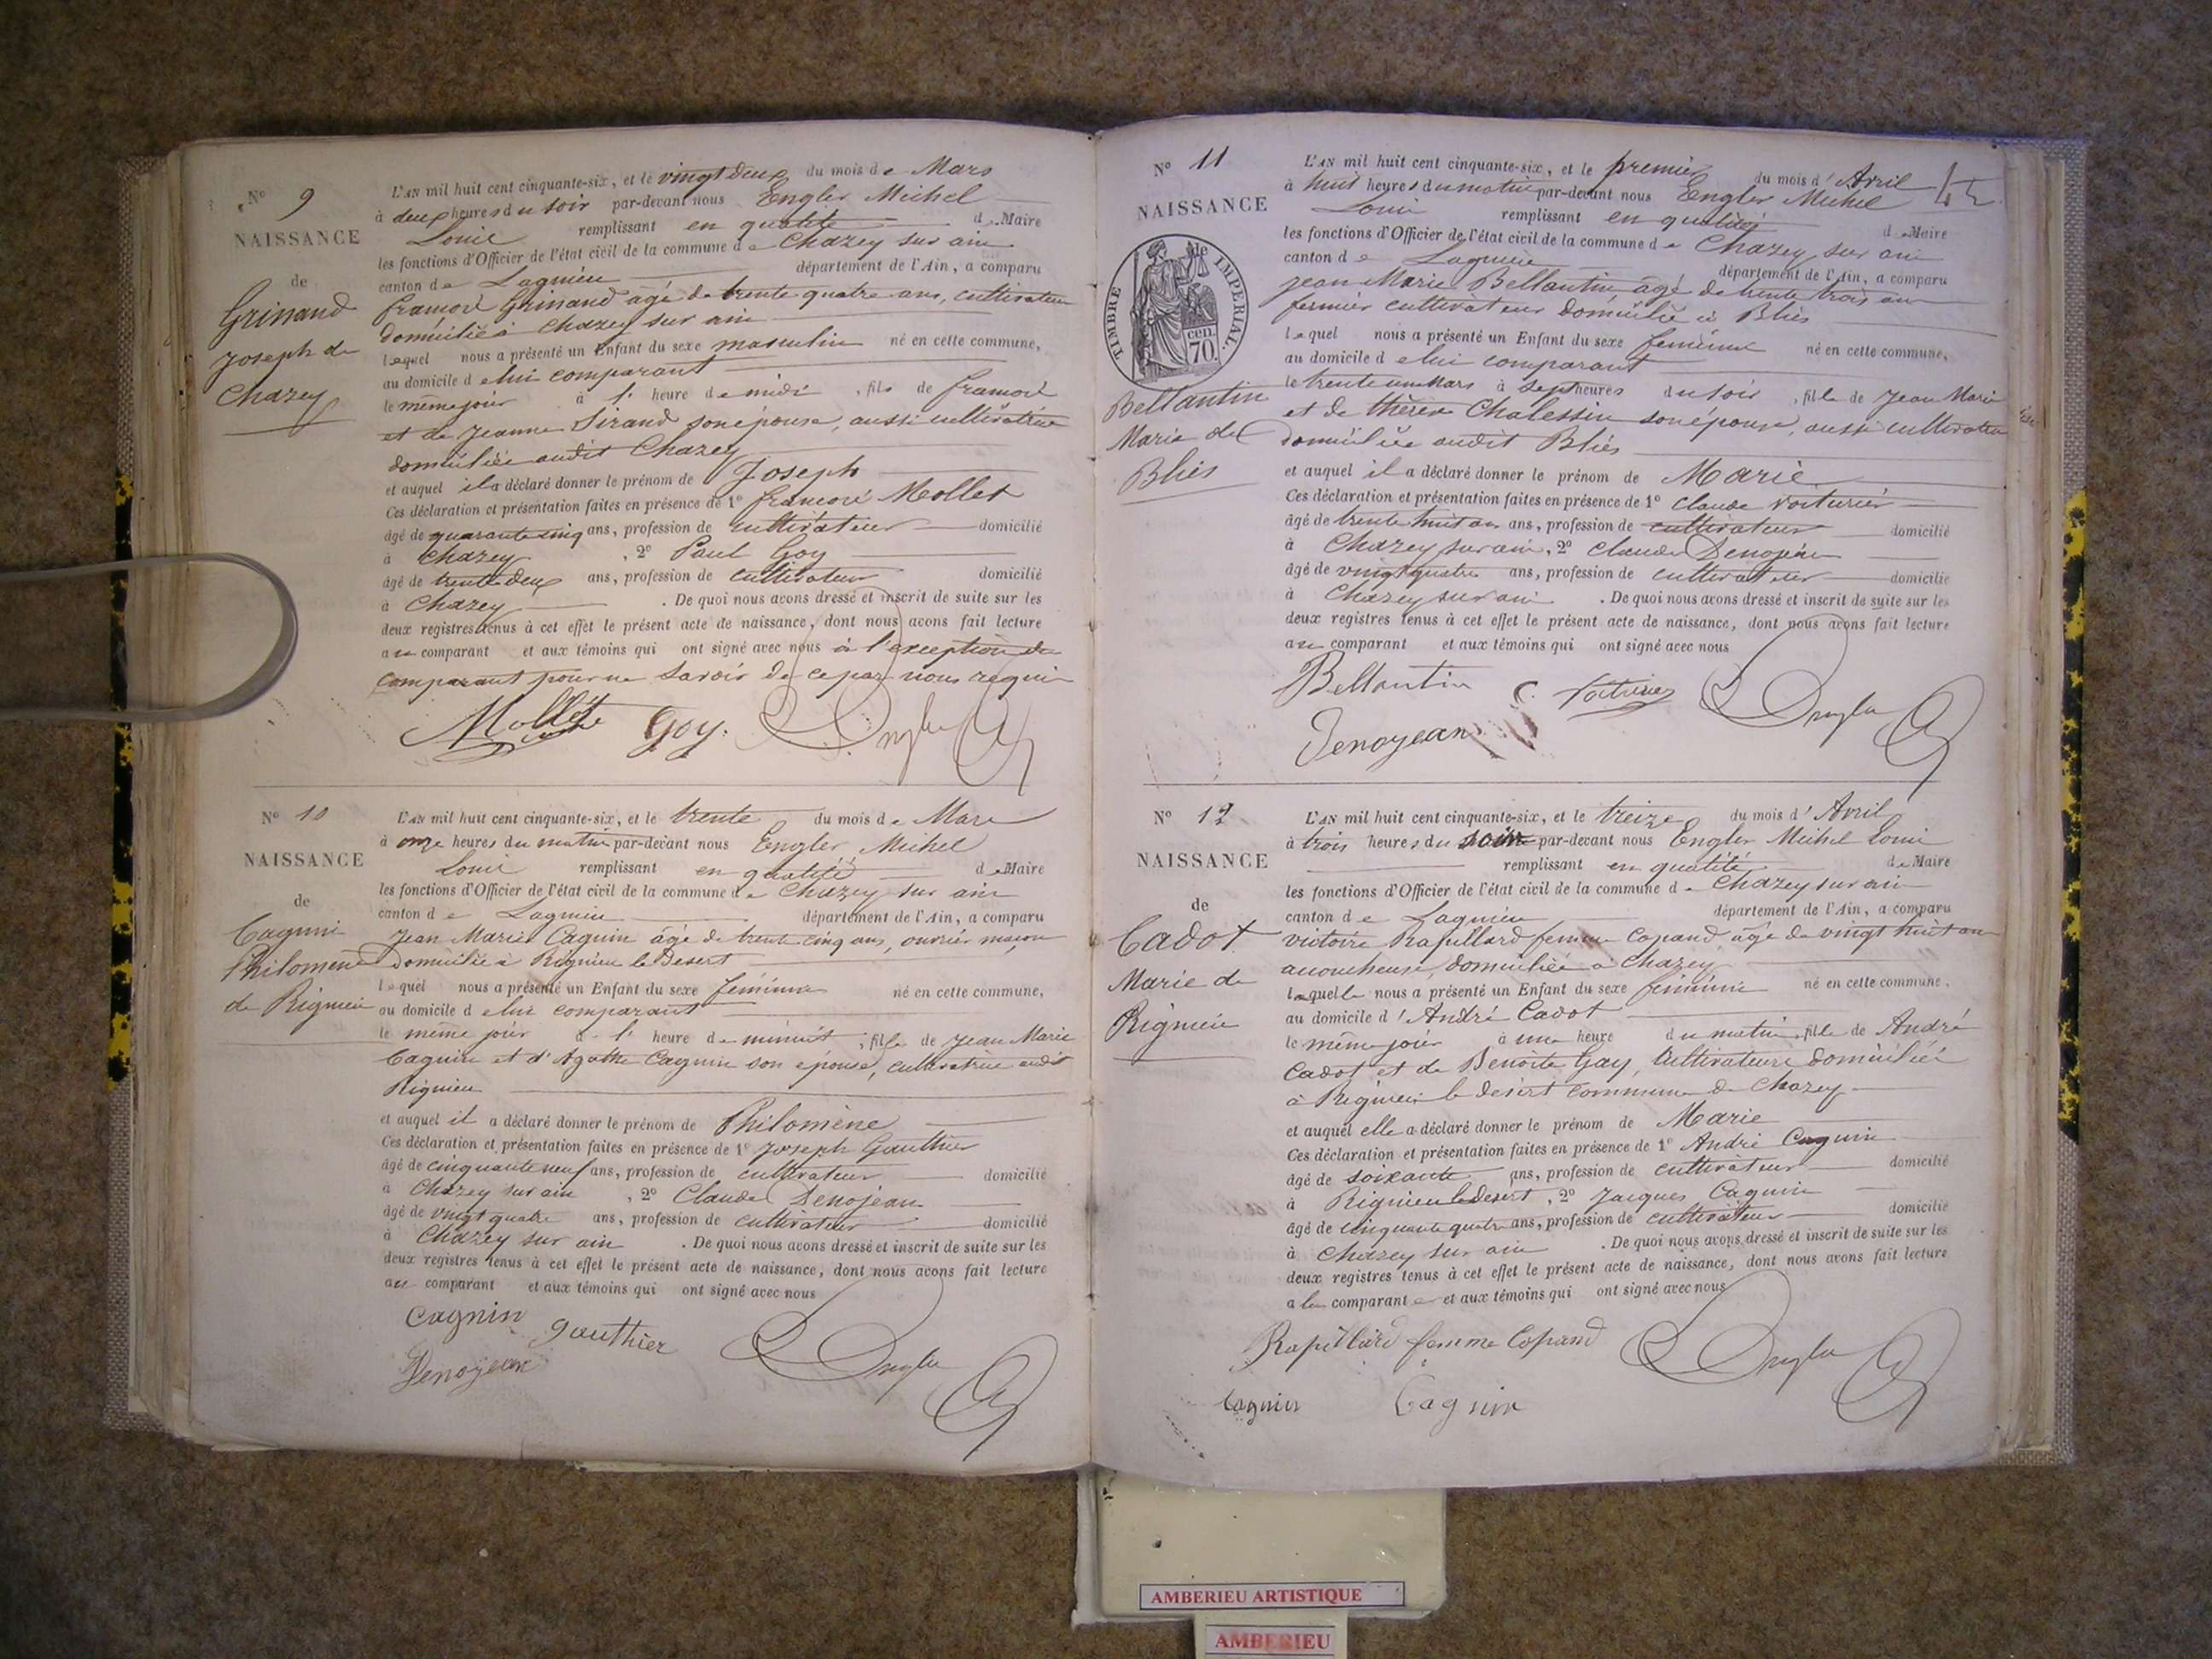 N° 9
NAISSANCE
de
Grinand
Joseph de
Chazey
L'AN mil huit cent cinquante-six, et le vingt deux du mois de Mars
à deux heures du soir par-devant nous Engler Michel
Louis remplissant en qualité de Maire
les fonctions d'Officier de l'état civil de la commune de Chazey sur ain
canton de Lagnieu département de l'Ain, a comparu
françois Grinand âgé de trente quatre ans, cultivateur
domicilié à Chazey sur ain
lequel nous a présenté un Enfant du sexe masculin né en cette commune,
au domicile de lui comparant
le même jour à l' heure de midi, fils de françois
et de Jeanne Sirand son épouse, aussi cultivatrice
domiciliée audit Chazey
et auquel il a déclaré donner le prénom de Joseph
Ces déclaration et présentation faites en présence de 1° françois Mollet
âgé de quarante cinq ans, profession de cultivateur domicilié
à Chazey, 2° Paul Goy
âgé de trente deux ans, profession de cultivateur domicilié
à Chazey. De quoi nous avons dressé et inscrit de suite sur les
deux registres tenus à cet effet le présent acte de naissance, dont nous avons fait lecture
au comparant et aux témoins qui ont signé avec nous à l'exception du
comparant pour ne savoir de ce par nous requis
Mollet Goy. Engler
N° 10
NAISSANCE
de
Cagnin
Philomène
de Rignieu
L'AN mil huit cent cinquante-six, et le trente du mois de Mars
à onze heures du matin par-devant nous Engler Michel
Louis remplissant en qualité de Maire
les fonctions d'Officier de l'état civil de la commune de Chazey sur ain
canton de Lagnieu département de l'Ain, a comparu
Jean Marie Cagnin âgé de trente cinq ans, ouvrier maçon
domicilié à Rignieu le Desert
lequel nous a présenté un Enfant du sexe féminin né en cette commune,
au domicile de lui comparant
le même jour à l' heure de minuit, fille de Jean Marie
Cagnin et d'Agathe Cagnin son épouse, cultivatrice audit
Rignieu
et auquel il a déclaré donner le prénom de Philomène
Ces déclaration et présentation faites en présence de 1° Joseph Gauthier
âgé de cinquante neuf ans, profession de cultivateur domicilié
à Chazey sur ain, 2° Claude Denojean
âgé de vingt quatre ans, profession de cultivateur domicilié
à Chazey sur ain. De quoi nous avons dressé et inscrit de suite sur les
deux registres tenus à cet effet le présent acte de naissance, dont nous avons fait lecture
au comparant et aux témoins qui ont signé avec nous
Cagnin gauthier Engler
Denojean
N° 11
NAISSANCE
TIMBRE IMPERIAL.
cen. 70.
Bellantin
Marie de
Bliès
L'AN mil huit cent cinquante-six, et le premier du mois d'Avril
à huit heures du matin par-devant nous Engler Michel
Louis remplissant en qualité de Maire
les fonctions d'Officier de l'état civil de la commune de Chazey sur ain
canton de Lagnieu département de l'Ain, a comparu
jean Marie Bellantin âgé de trente trois ans
fermier cultivateur domicilié à Bliès
lequel nous a présenté un Enfant du sexe féminin né en cette commune,
au domicile de lui comparant
le trente un Mars à sept heures du soir, fille de Jean Marie
et de thérèse Chalessin son épouse, aussi cultivatrice
domiciliée audit Bliès
et auquel il a déclaré donner le prénom de Marie
Ces déclaration et présentation faites en présence de 1° Claude Voiturier
âgé de trente huit ans ans, profession de cultivateur domicilié
à Chazey sur ain, 2° Claude Denojean
âgé de vingt quatre ans, profession de cultivateur domicilié
à Chazey sur ain. De quoi nous avons dressé et inscrit de suite sur les
deux registres tenus à cet effet le présent acte de naissance, dont nous avons fait lecture
au comparant et aux témoins qui ont signé avec nous
Bellantin C. Voiturier Engler
Denojean
N° 12
NAISSANCE
de
Cadot
Marie de
Rignieu
L'AN mil huit cent cinquante-six, et le treize du mois d'Avril
à trois heures du soir par-devant nous Engler Michel Louis
remplissant en qualité de Maire
les fonctions d'Officier de l'état civil de la commune de Chazey sur ain
canton de Lagnieu département de l'Ain, a comparu
victoire Rapillard femme Copand, âgé de vingt huit ans
accoucheuse, domiciliée à Chazey
laquelle nous a présenté un Enfant du sexe féminin né en cette commune,
au domicile d'André Cadot
le même jour à une heure du matin, fille de André
Cadot et de Benoîte Gay, cultivateurs domiciliés
à Rignieu le desert commune de Chazey
et auquel elle a déclaré donner le prénom de Marie
Ces déclaration et présentation faites en présence de 1° André Cagnin
âgé de soixante ans, profession de cultivateur domicilié
à Rignieu le desert, 2° Jacques Cagnin
âgé de cinquante quatre ans, profession de cultivateur domicilié
à Chazey sur ain. De quoi nous avons dressé et inscrit de suite sur les
deux registres tenus à cet effet le présent acte de naissance, dont nous avons fait lecture
a la comparante et aux témoins qui ont signé avec nous
Rapillard femme Copand Engler
Cagnin Cagnin
AMBERIEU ARTISTIQUE
AMBERIEU